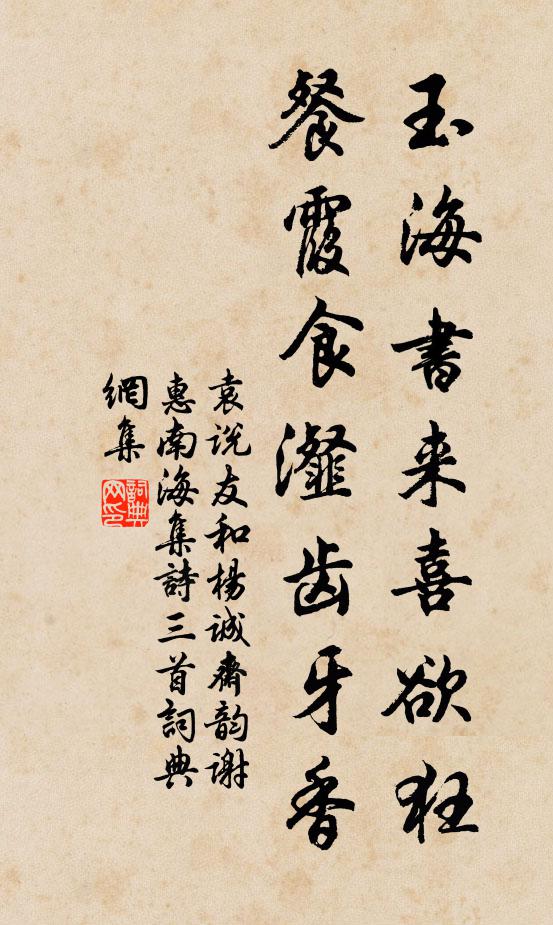 玉海書来喜欲狂
餐霞食瀣齿牙香
袁说友和楊诚齋韵谢
惠南海集詩三首詞典
網集
詞典
网印